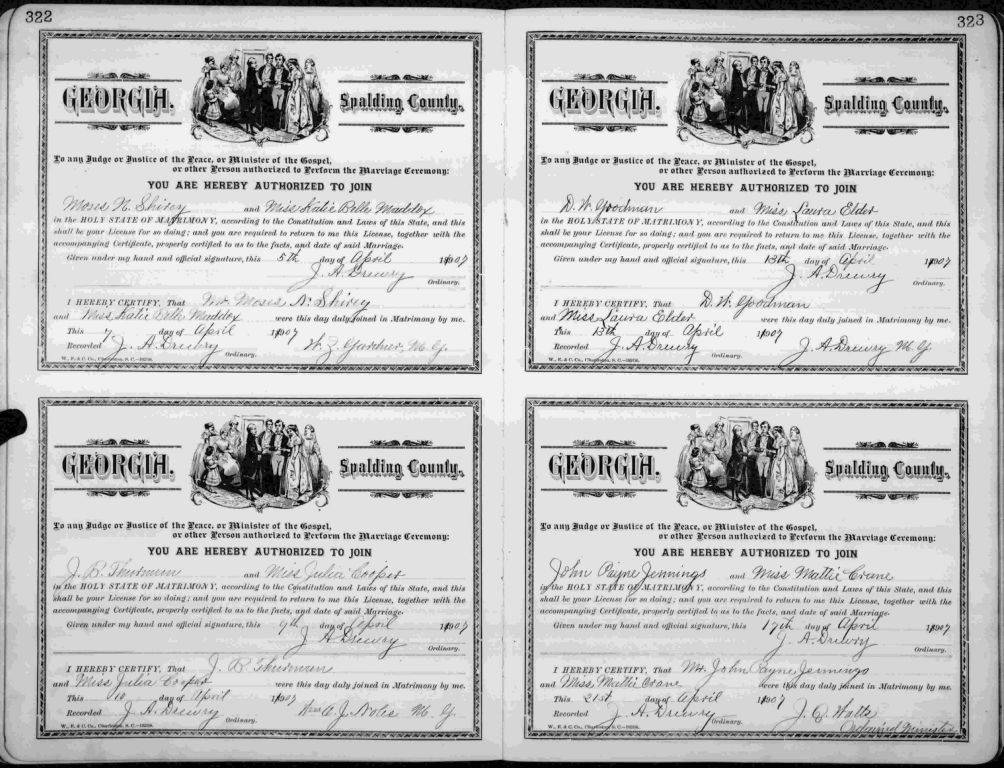 322
GEORGIA. Spalding County.
To any Judge or Justice of the Peace, or Minister of the Gospel,
or other Person authorized to Perform the Marriage Ceremony:
YOU ARE HEREBY AUTHORIZED TO JOIN
Moses N. Shivey and Miss Katie Belle Maddox
in the HOLY STATE OF MATRIMONY, according to the Constitution and Laws of this State, and this
shall be your License for so doing; and you are required to return to me this License, together with the
accompanying Certificate, properly certified as to the facts, and date of said Marriage.
Given under my hand and official signature, this 5th day of April 1907
J. A. Drewry
Ordinary.
I HEREBY CERTIFY, That Mr. Moses N. Shivey
and Miss Katie Belle Maddox were this day duly joined in Matrimony by me.
This 7 day of April 1907
Recorded J. A. Drewry W. Z. Gardner, M. G.
Ordinary.
W., E. & C. Co., Charleston, S. C.
GEORGIA. Spalding County.
To any Judge or Justice of the Peace, or Minister of the Gospel,
or other Person authorized to Perform the Marriage Ceremony:
YOU ARE HEREBY AUTHORIZED TO JOIN
J. B. Thurman and Miss Julia Cooper
in the HOLY STATE OF MATRIMONY, according to the Constitution and Laws of this State, and this
shall be your License for so doing; and you are required to return to me this License, together with the
accompanying Certificate, properly certified as to the facts, and date of said Marriage.
Given under my hand and official signature, this 9th day of April 1907
J. A. Drewry
Ordinary.
I HEREBY CERTIFY, That J. B. Thurman
and Miss Julia Cooper were this day duly joined in Matrimony by me.
This 10 day of April 1907
Recorded J. A. Drewry J. Notis M. G.
Ordinary.
W., E. & C. Co., Charleston, S. C.
323
GEORGIA. Spalding County.
To any Judge or Justice of the Peace, or Minister of the Gospel,
or other Person authorized to Perform the Marriage Ceremony:
YOU ARE HEREBY AUTHORIZED TO JOIN
D. W. Goodman and Miss Laura Elder
in the HOLY STATE OF MATRIMONY, according to the Constitution and Laws of this State, and this
shall be your License for so doing; and you are required to return to me this License, together with the
accompanying Certificate, properly certified as to the facts, and date of said Marriage.
Given under my hand and official signature, this 13th day of April 1907
J. A. Drewry
Ordinary.
I HEREBY CERTIFY, That D. W. Goodman
and Miss Laura Elder were this day duly joined in Matrimony by me.
This 13th day of April 1907
Recorded J. A. Drewry J. A. Drewry M. G.
Ordinary.
W., E. & C. Co., Charleston, S. C.
GEORGIA. Spalding County.
To any Judge or Justice of the Peace, or Minister of the Gospel,
or other Person authorized to Perform the Marriage Ceremony:
YOU ARE HEREBY AUTHORIZED TO JOIN
John Payne Jennings and Miss Mattie Crane
in the HOLY STATE OF MATRIMONY, according to the Constitution and Laws of this State, and this
shall be your License for so doing; and you are required to return to me this License, together with the
accompanying Certificate, properly certified as to the facts, and date of said Marriage.
Given under my hand and official signature, this 17th day of April 1907
J. A. Drewry
Ordinary.
I HEREBY CERTIFY, That Mr. John Payne Jennings
and Miss Mattie Crane were this day duly joined in Matrimony by me.
This 21st day of April 1907
Recorded J. A. Drewry J. Q. Watts
Ordinary. Ordained Minister
W., E. & C. Co., Charleston, S. C.